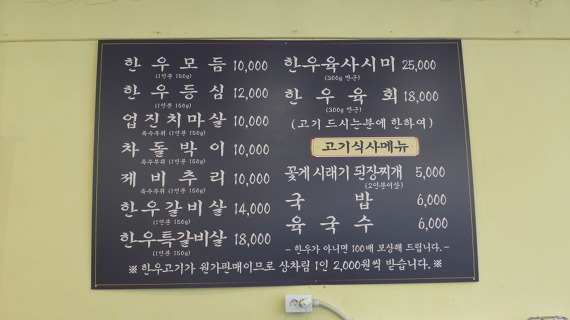 한우모듬 10,000
(1인분 150g)
한우등심 12,000
(1인분 150g)
업진치마살 10,000
특수부위 (1인분 150g)
차돌박이 10,000
특수부위 (1인분 150g)
제비추리 10,000
특수부위 (1인분 150g)
한우갈비살 14,000
(1인분 150g)
한우특갈비살 18,000
(1인분 150g)
한우육사시미 25,000
(300g 반근)
한우육회 18,000
(300g 반근)
(고기 드시는분에 한하여)
고기식사메뉴
꽃게 시래기 된장찌개 5,000
(2인분이상)
국밥 6,000
육국수 6,000
- 한우가 아니면 100배 보상해 드립니다. -
※ 한우고기가 원가판매이므로 상차림 1인 2,000원씩 받습니다. ※